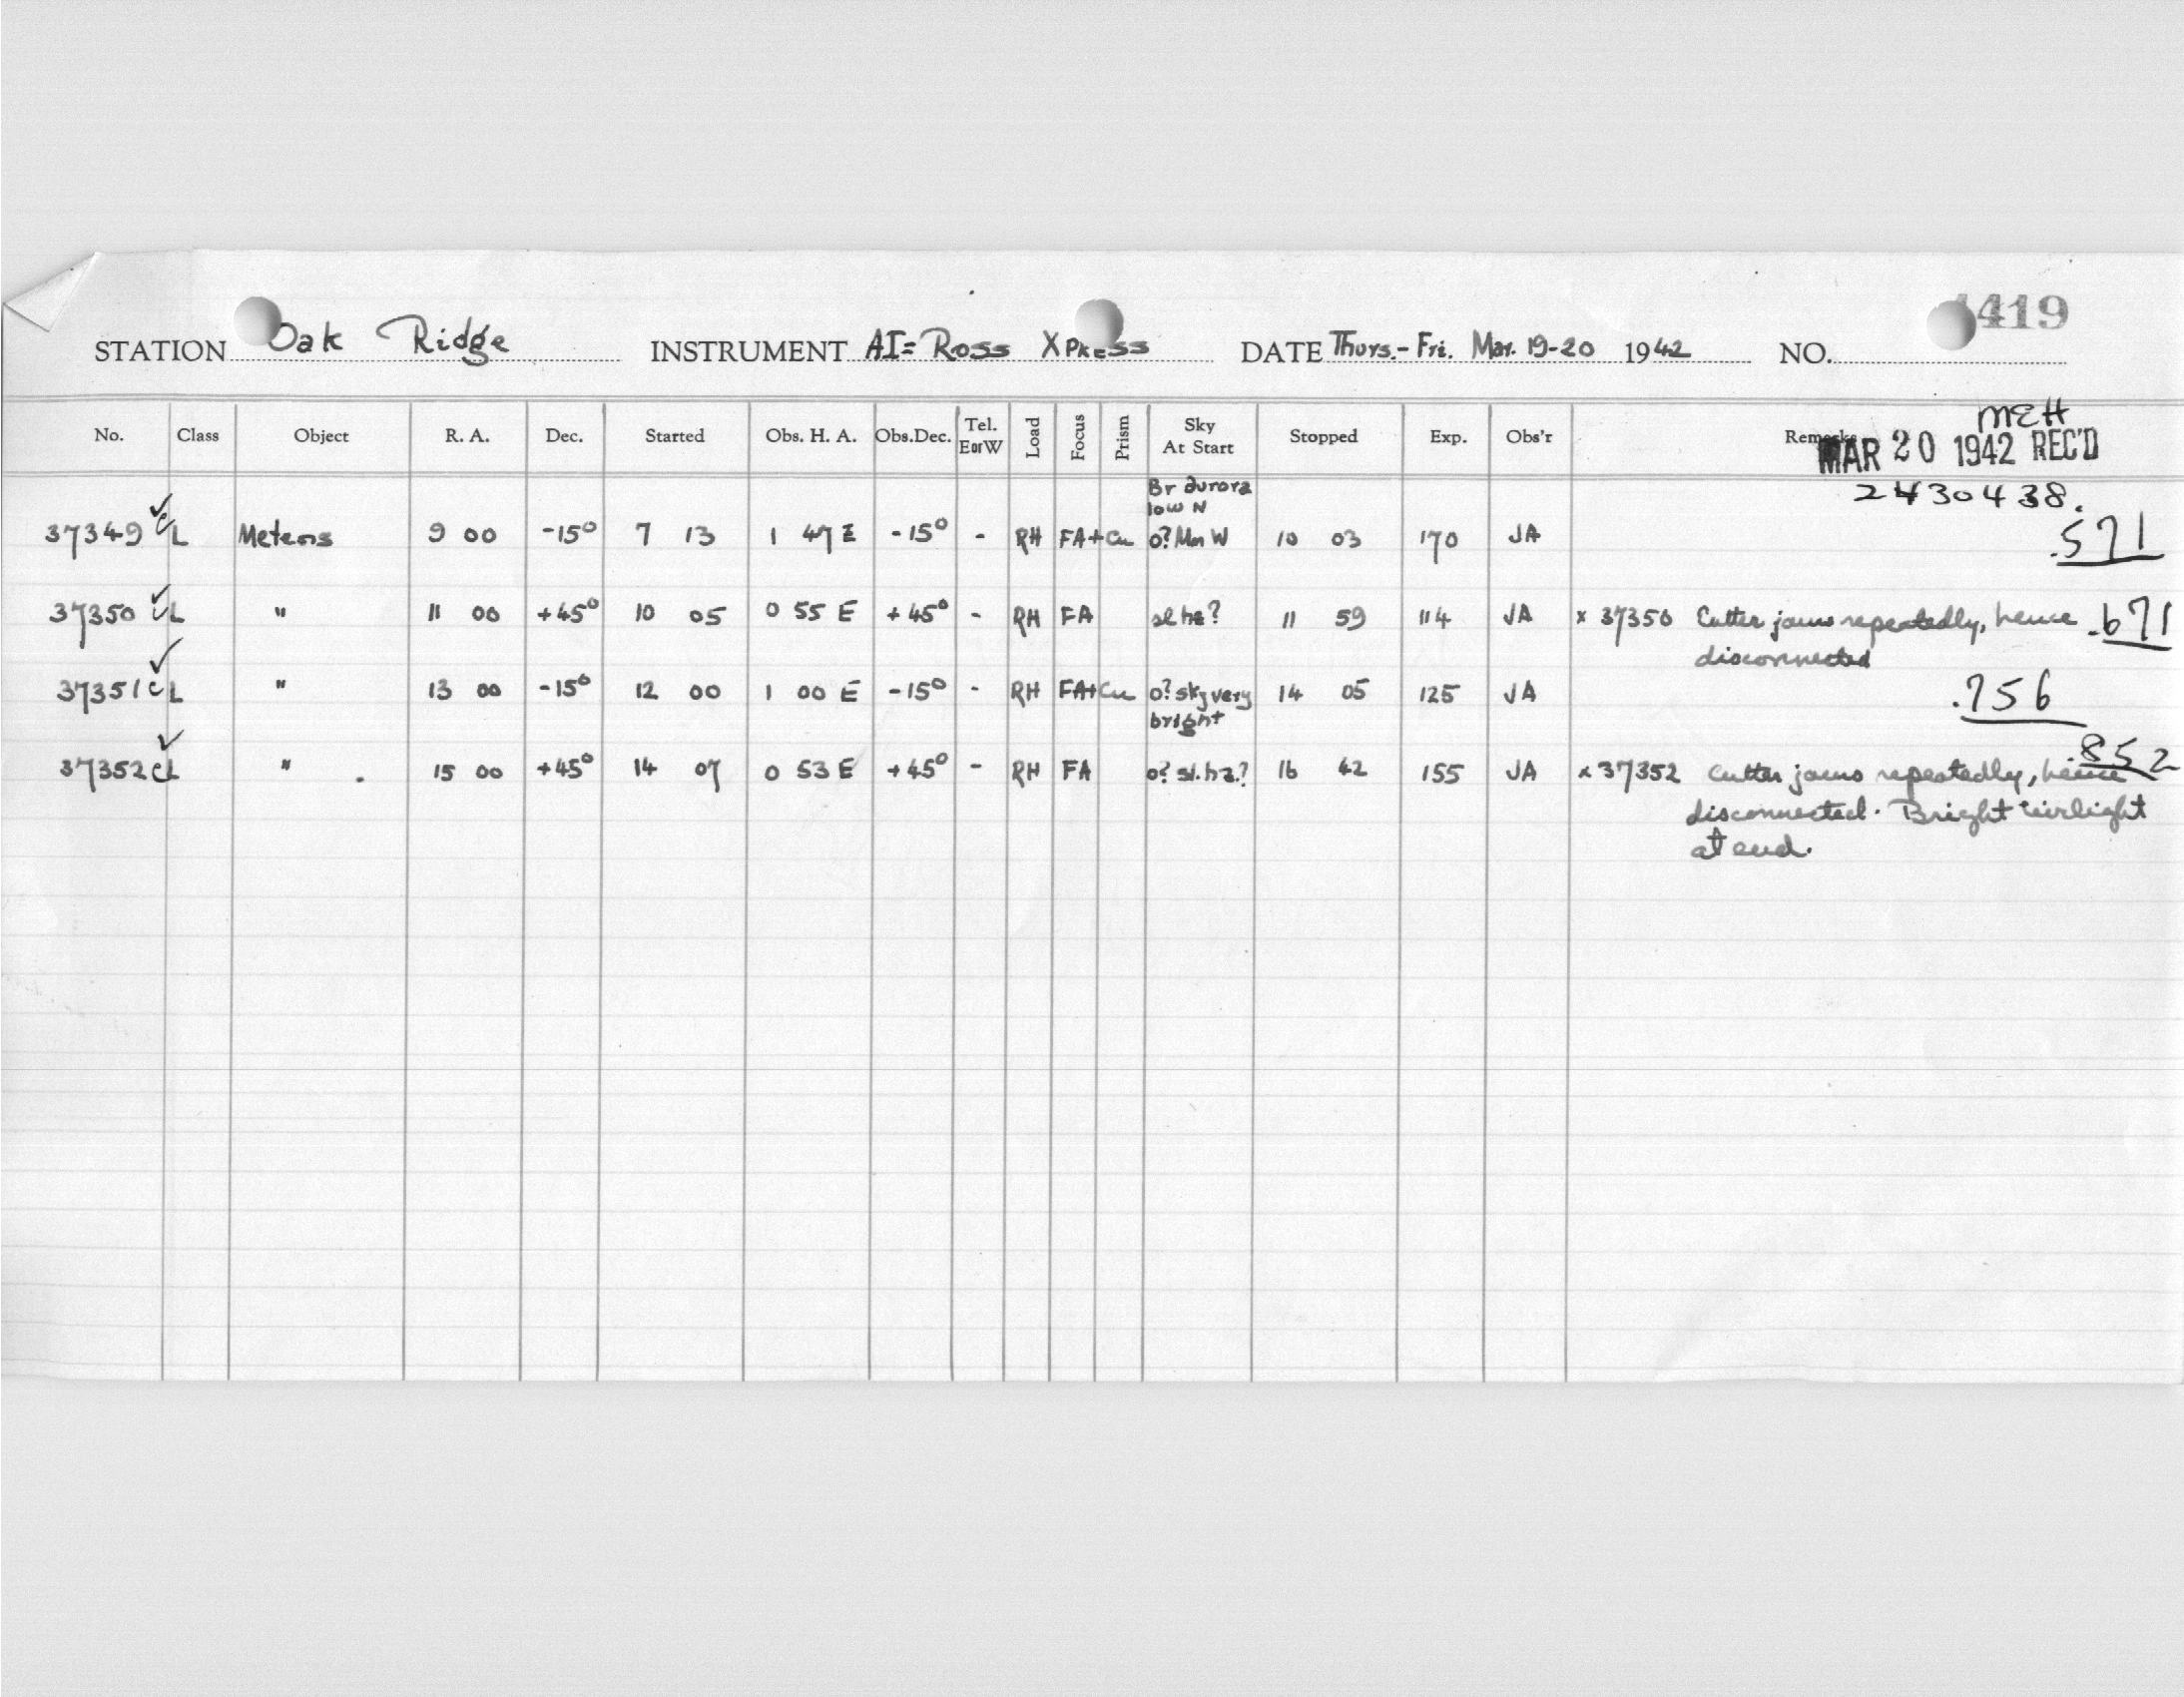 419
STATION Oak Ridge INSTRUMENT AI= Ross Xpress DATE Thurs.-Fri. Mar. 19-20 1942 NO.
MEH
No. Class Object R. A. Dec. Started Obs. H. A. Obs.Dec. Tel. EorW Load Focus Prism Sky At Start Stopped Exp. Obs'r Remarks
MAR 20 1942 REC'D
2430438.
Br aurora
low N
37349 CL Meteors 9 00 -15° 7 13 1 47 E -15° - RH FA+Cu o? Mn W 10 03 170 JA .571
37350 CL " 11 00 +45° 10 05 0 55 E +45° - RH FA sl hz? 11 59 114 JA x 37350 Cutter jams repeatedly, hence .671
disconnected
37351 CL " 13 00 -15° 12 00 1 00 E -15° - RH FA+Cu o? sky very 14 05 125 JA .756
bright
37352 CL " 15 00 +45° 14 07 0 53 E +45° - RH FA o? sl. hz.? 16 42 155 JA x 37352 Cutter jams repeatedly, hence .852
disconnected. Bright twilight
at end.